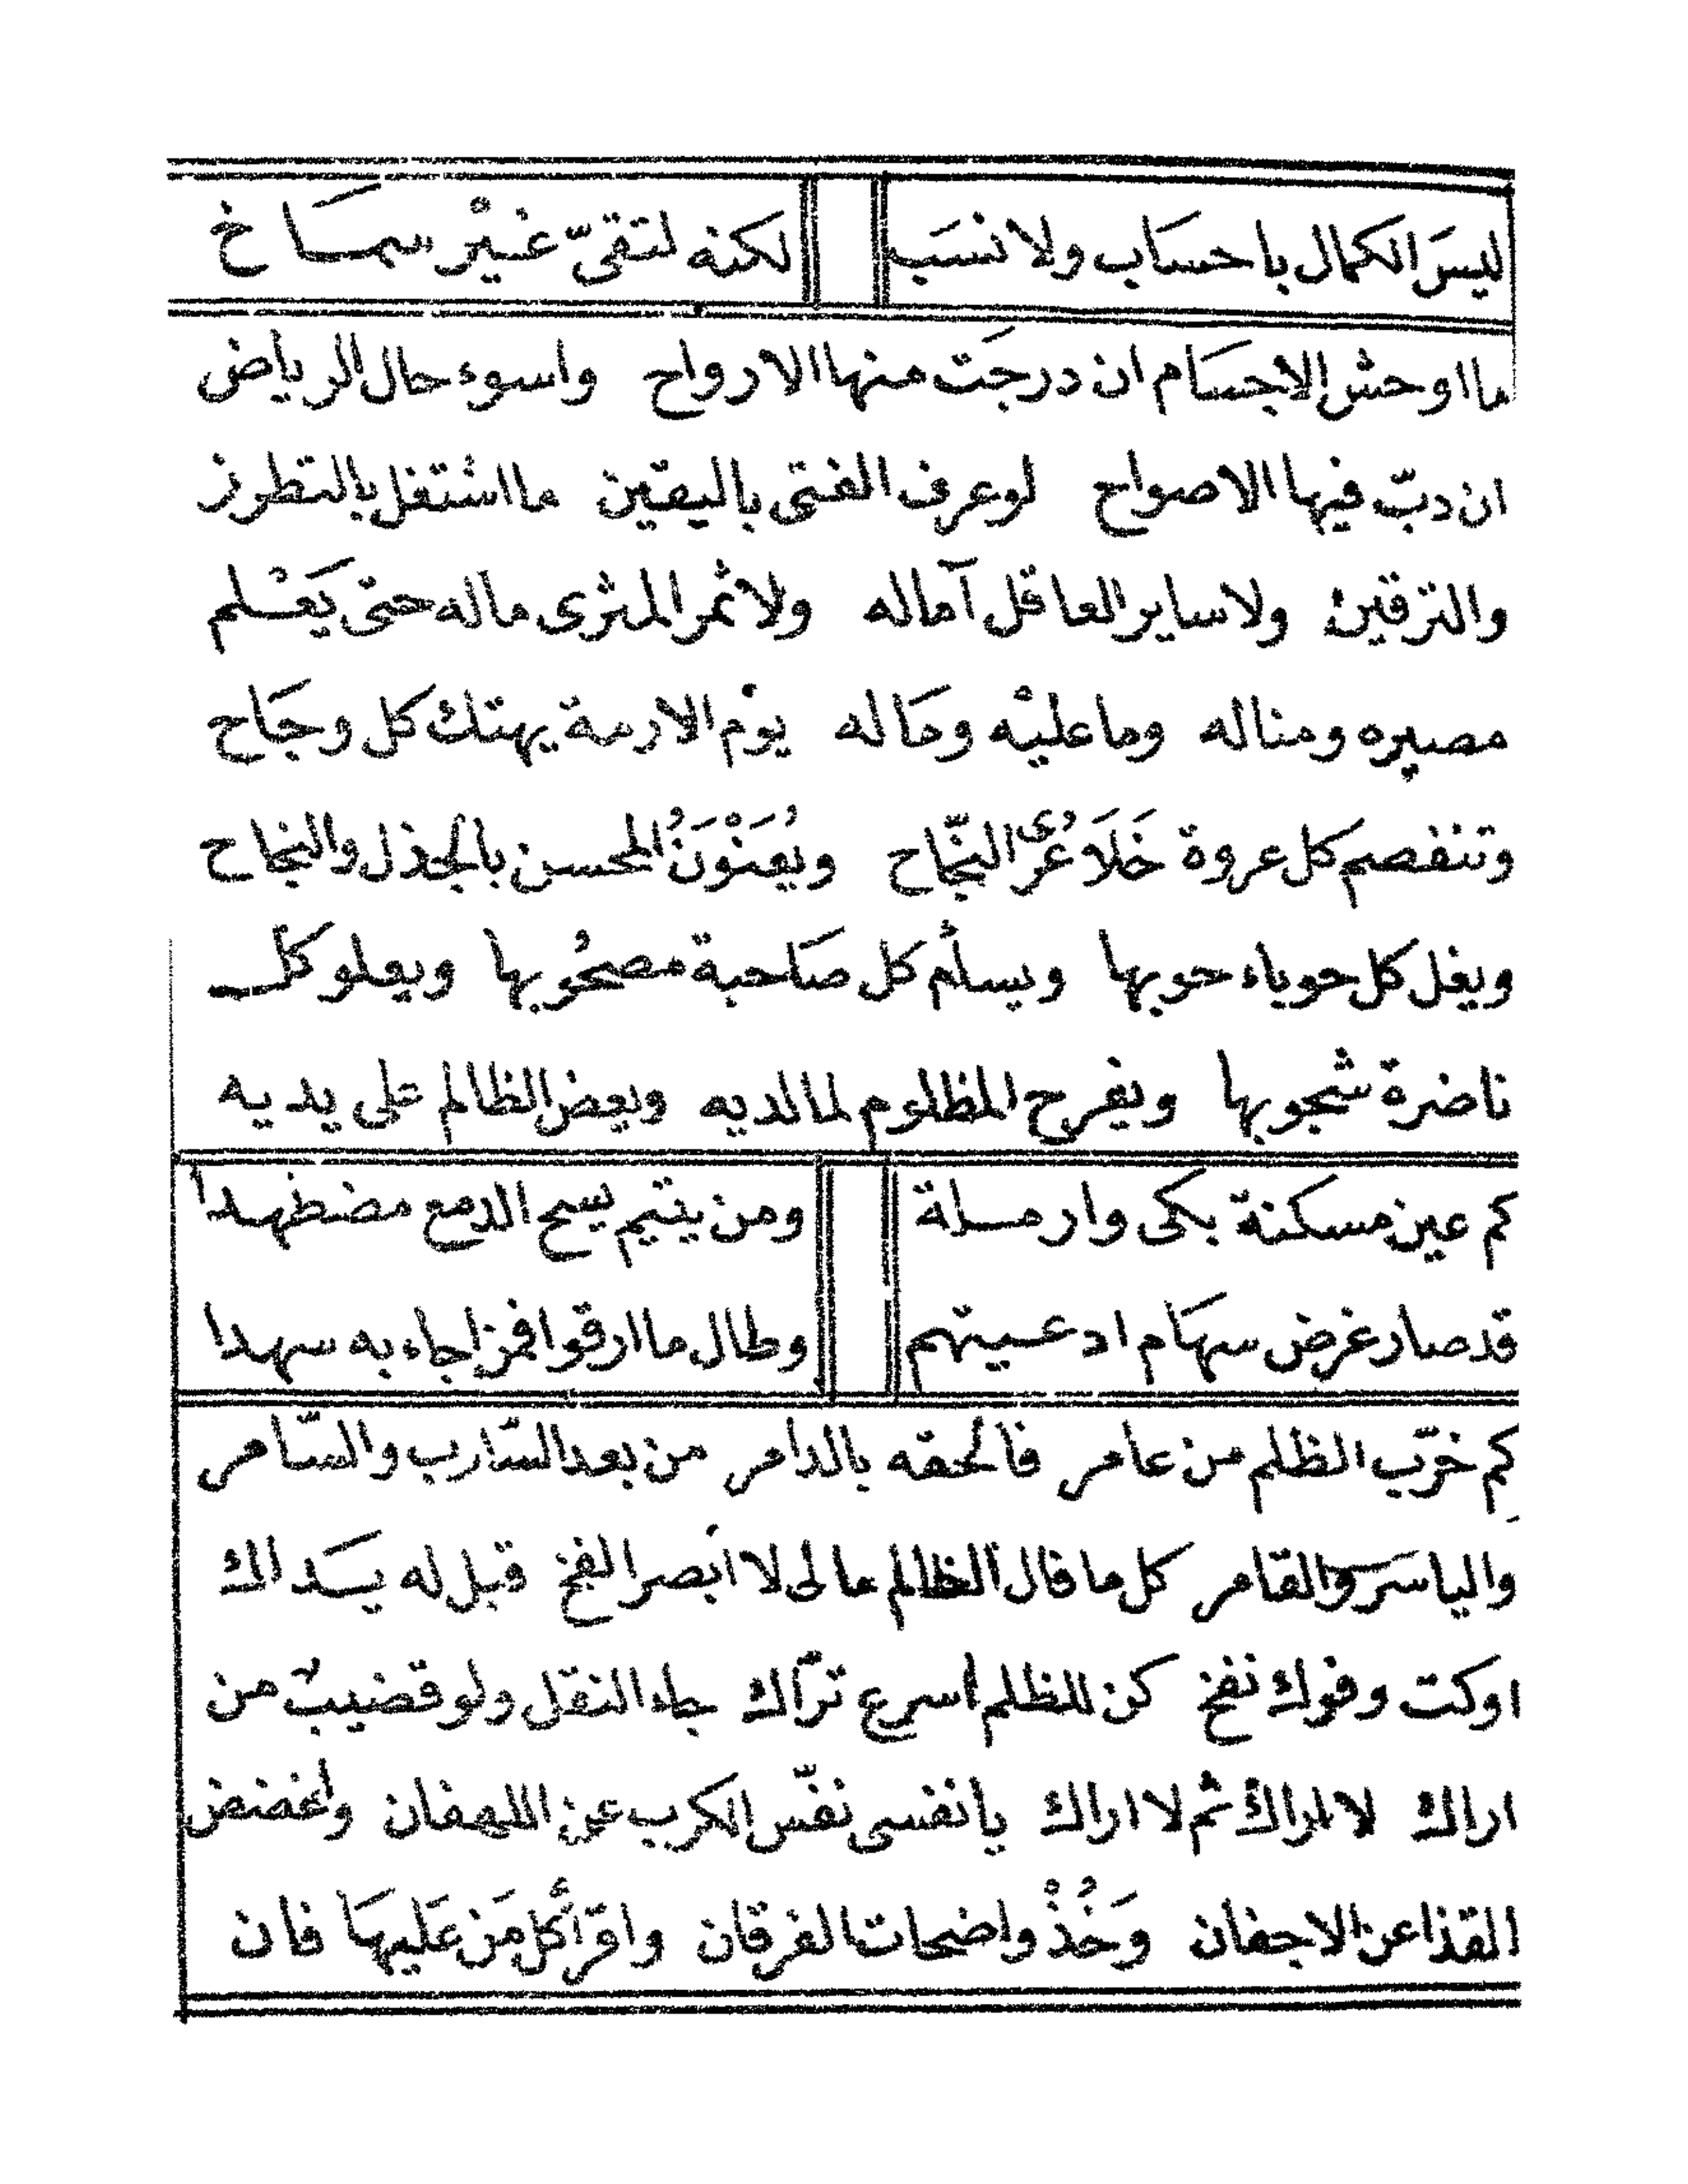 ليسَ الكمال باحسَاب ولا نسَب لكنه لتقىّ غيْر سمَاخ
ما اوحش الاجسَام ان درجَت منها الارواح واسوء حال الرياض
ان دبّ فيها الاصواح لو عرف الفتى باليقين ما اشتغل بالتطويز
والترقين ولا ساير العاقل آماله ولا ثمر المثرى ماله حتى يَعْلم
مصيره ومناله وما عليْه ومَا له يوْم الازمة يهتك كل وجَاح
وتنفصم كل عروة خَلَا عُرى النّجاح ويُعَنْوَنُ المحسن بالجذل والنجاح
ويغل كل حوباء حوبها ويسأم كل صَاحبة مصحُوبها ويعلو كل
ناضرة شجوبها ويفرح المظلوم لما لديه ويعض الظالم على يديه
كم عين مسكنة بكى وارملة ومن يتيم يسح الدمع مضطهدا
قد صار غرض سهَام ادعيتهم وطال ما ارقوا فمن اجاء به سهدا
كم خرّب الظلم من عامر فالحقه بالدامر من بعد السّارب والسّامر
والياسَر والقامر كل ما قال الظالم ما لى لا ابصر الفخ قيل له يسَداك
اوكت وفوك نفخ كن للظلم اسرع ترّاك جاء النقل ولو قضيبٌ من
اراك لا اراك ثم لا اراك يا نفسى نفّس الكرب عن اللهفان واغضض
القذا عن الاجفان وَخُذْ واضحات الفرقان واقرَأ كل مَن عَليهَا فان